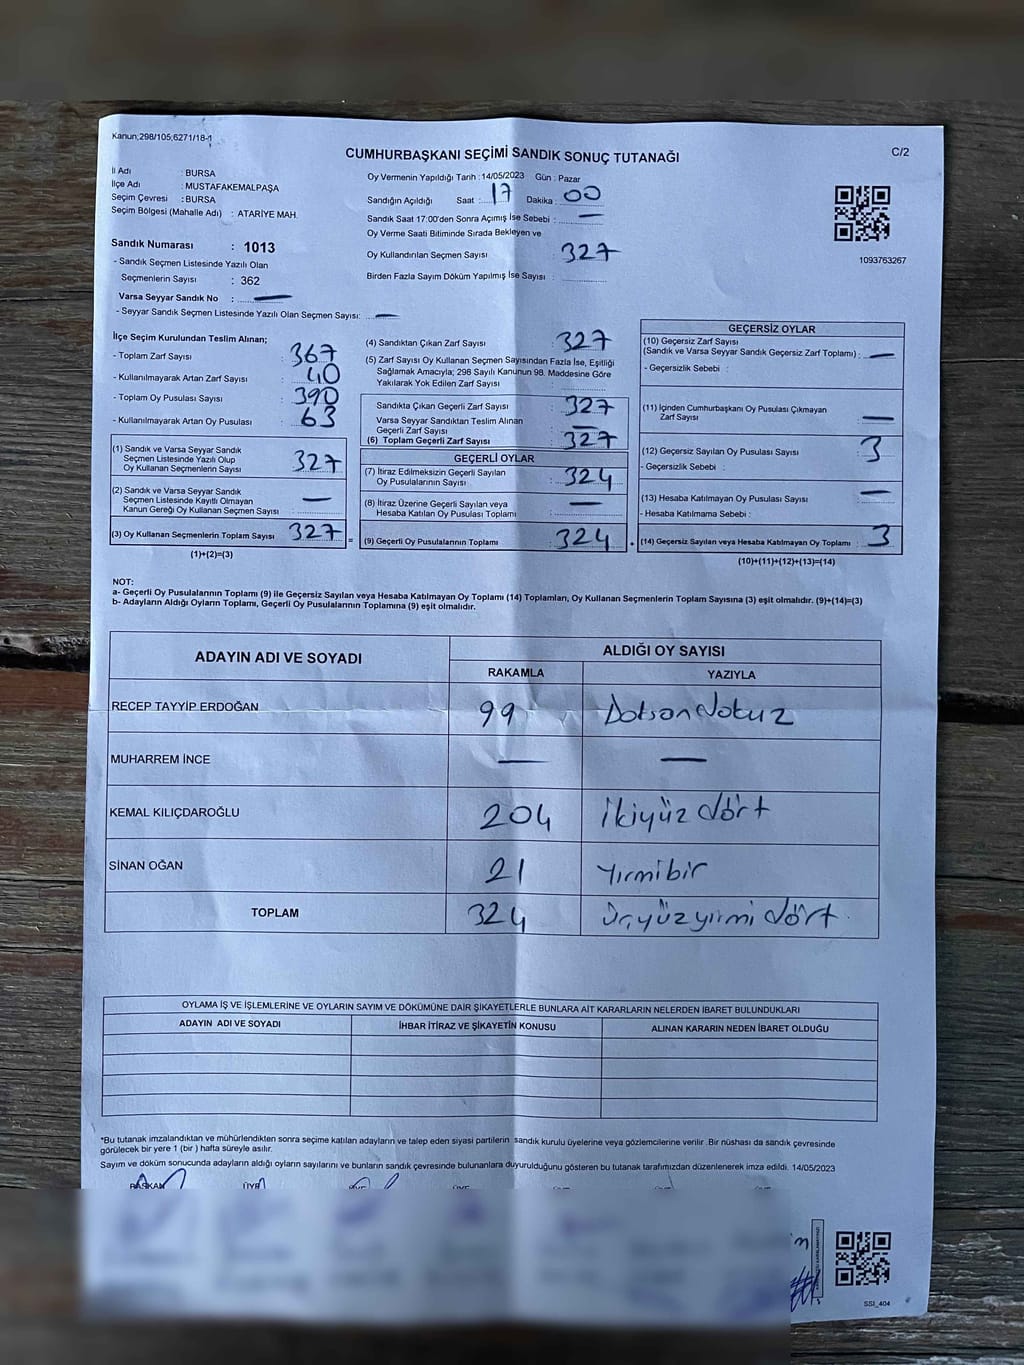 Kanun;298/105;6271/18-1
C/2
CUMHURBAŞKANI SEÇİMİ SANDIK SONUÇ TUTANAĞI
İl Adı : BURSA
İlçe Adı : MUSTAFAKEMALPAŞA
Seçim Çevresi : BURSA
Seçim Bölgesi (Mahalle Adı) : ATARİYE MAH.
Sandık Numarası : 1013
- Sandık Seçmen Listesinde Yazılı Olan
Seçmenlerin Sayısı : 362
Varsa Seyyar Sandık No : —
- Seyyar Sandık Seçmen Listesinde Yazılı Olan Seçmen Sayısı: —
Oy Vermenin Yapıldığı Tarih : 14/05/2023 Gün : Pazar
Sandığın Açıldığı Saat : 17 Dakika : 00
Sandık Saat 17:00'den Sonra Açımış İse Sebebi : —
Oy Verme Saati Bitiminde Sırada Bekleyen ve
Oy Kullandırılan Seçmen Sayısı : 327
Birden Fazla Sayım Döküm Yapılmış İse Sayısı :
1093763267
İlçe Seçim Kurulundan Teslim Alınan;
- Toplam Zarf Sayısı : 367
- Kullanılmayarak Artan Zarf Sayısı : 40
- Toplam Oy Pusulası Sayısı : 390
- Kullanılmayarak Artan Oy Pusulası : 63
(1) Sandık ve Varsa Seyyar Sandık
Seçmen Listesinde Yazılı Olup
Oy Kullanan Seçmenlerin Sayısı : 327
(2) Sandık ve Varsa Seyyar Sandık
Seçmen Listesinde Kayıtlı Olmayan
Kanun Gereği Oy Kullanan Seçmen Sayısı : —
(3) Oy Kullanan Seçmenlerin Toplam Sayısı : 327 =
(1)+(2)=(3)
(4) Sandıktan Çıkan Zarf Sayısı : 327
(5) Zarf Sayısı Oy Kullanan Seçmen Sayısından Fazla İse, Eşitliği
Sağlamak Amacıyla; 298 Sayılı Kanunun 98. Maddesine Göre
Yakılarak Yok Edilen Zarf Sayısı :
Sandıkta Çıkan Geçerli Zarf Sayısı : 327
Varsa Seyyar Sandıktan Teslim Alınan
Geçerli Zarf Sayısı : —
(6) Toplam Geçerli Zarf Sayısı : 327
GEÇERLİ OYLAR
(7) İtiraz Edilmeksizin Geçerli Sayılan
Oy Pusulalarının Sayısı : 324
(8) İtiraz Üzerine Geçerli Sayılan veya
Hesaba Katılan Oy Pusulası Toplamı : —
(9) Geçerli Oy Pusulalarının Toplamı : 324 +
GEÇERSİZ OYLAR
(10) Geçersiz Zarf Sayısı
(Sandık ve Varsa Seyyar Sandık Geçersiz Zarf Toplamı) : —
- Geçersizlik Sebebi :
(11) İçinden Cumhurbaşkanı Oy Pusulası Çıkmayan
Zarf Sayısı : —
(12) Geçersiz Sayılan Oy Pusulası Sayısı : 3
- Geçersizlik Sebebi :
(13) Hesaba Katılmayan Oy Pusulası Sayısı : —
- Hesaba Katılmama Sebebi :
(14) Geçersiz Sayılan veya Hesaba Katılmayan Oy Toplamı : 3
(10)+(11)+(12)+(13)=(14)
NOT:
a- Geçerli Oy Pusulalarının Toplamı (9) ile Geçersiz Sayılan veya Hesaba Katılmayan Oy Toplamı (14) Toplamları, Oy Kullanan Seçmenlerin Toplam Sayısına (3) eşit olmalıdır. (9)+(14)=(3)
b- Adayların Aldığı Oyların Toplamı, Geçerli Oy Pusulalarının Toplamına (9) eşit olmalıdır.
ADAYIN ADI VE SOYADI
ALDIĞI OY SAYISI
RAKAMLA YAZIYLA
RECEP TAYYİP ERDOĞAN 99 Doksandokuz
MUHARREM İNCE — —
KEMAL KILIÇDAROĞLU 204 İkiyüz dört
SİNAN OĞAN 21 Yirmibir
TOPLAM 324 Üçyüzyirmi dört
OYLAMA İŞ VE İŞLEMLERİNE VE OYLARIN SAYIM VE DÖKÜMÜNE DAİR ŞİKAYETLERLE BUNLARA AİT KARARLARIN NELERDEN İBARET BULUNDUKLARI
ADAYIN ADI VE SOYADI İHBAR İTİRAZ VE ŞİKAYETİN KONUSU ALINAN KARARIN NEDEN İBARET OLDUĞU
*Bu tutanak imzalandıktan ve mühürlendikten sonra seçime katılan adayların ve talep eden siyasi partilerin sandık kurulu üyelerine veya gözlemcilerine verilir .Bir nüshası da sandık çevresinde
görülecek bir yere 1 (bir ) hafta süreyle asılır.
Sayım ve döküm sonucunda adayların aldığı oyların sayılarını ve bunların sandık çevresinde bulunanlara duyurulduğunu gösteren bu tutanak tarafımızdan düzenlenerek imza edildi. 14/05/2023
BAŞKAN ÜYE
SSI_404